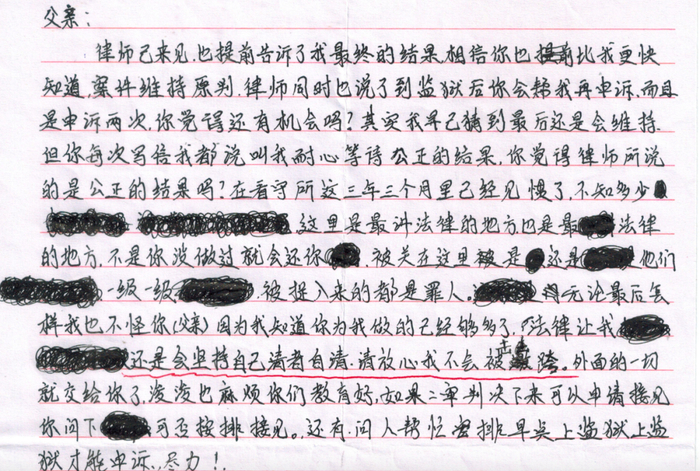 父亲：
律师已来见，也提前告诉了我最终的结果，相信你也比我更快
知道，案件维持原判，律师同时也说了到监狱后你会帮我再申诉，而且
是申诉两次，你觉得还有机会吗？其实我早已猜到最后还是会维持，
但你每次写信我都说叫我耐心等待公正的结果，你觉得律师所说
的是公正的结果吗？在看守所这三年三个月里已经见惯了，不知多少
这里是最讲法律的地方也是最法律
的地方，不是你没做过就会还你，被关在这里是还是他们
一级一级，被捉入来的都是罪人。无论最后怎
样我也不怪你(父亲)因为我知道你为我做的已经够多了，法律让我
还是会坚持自己清者自清，请放心我不会被击跨。外面的一切
就交给你了，浚浚也麻烦你们教育好，如果二审判决下来可以申请接见
你问下可否按排接见。还有，问人帮忙安排早点上监狱上监
狱才能申诉，尽力！